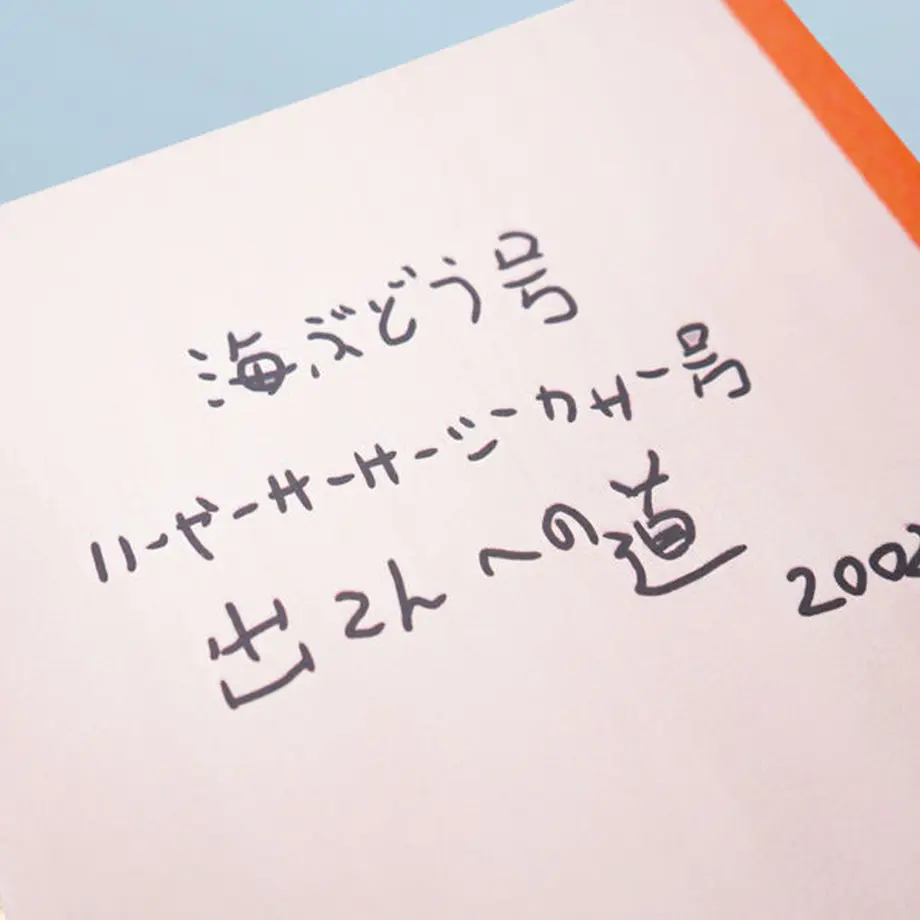 海ぶどう号
ハーヤーサーサージーカー号
出てんへの道
200